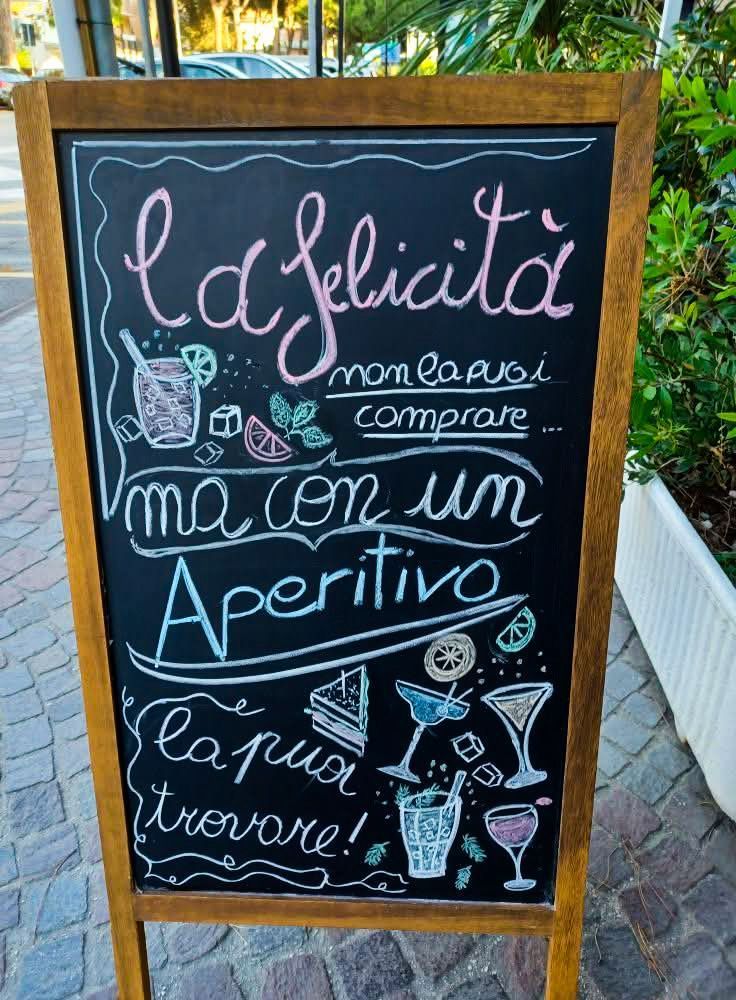 la felicità
non la puoi
comprare...
ma con un
Aperitivo
la puoi
trovare!